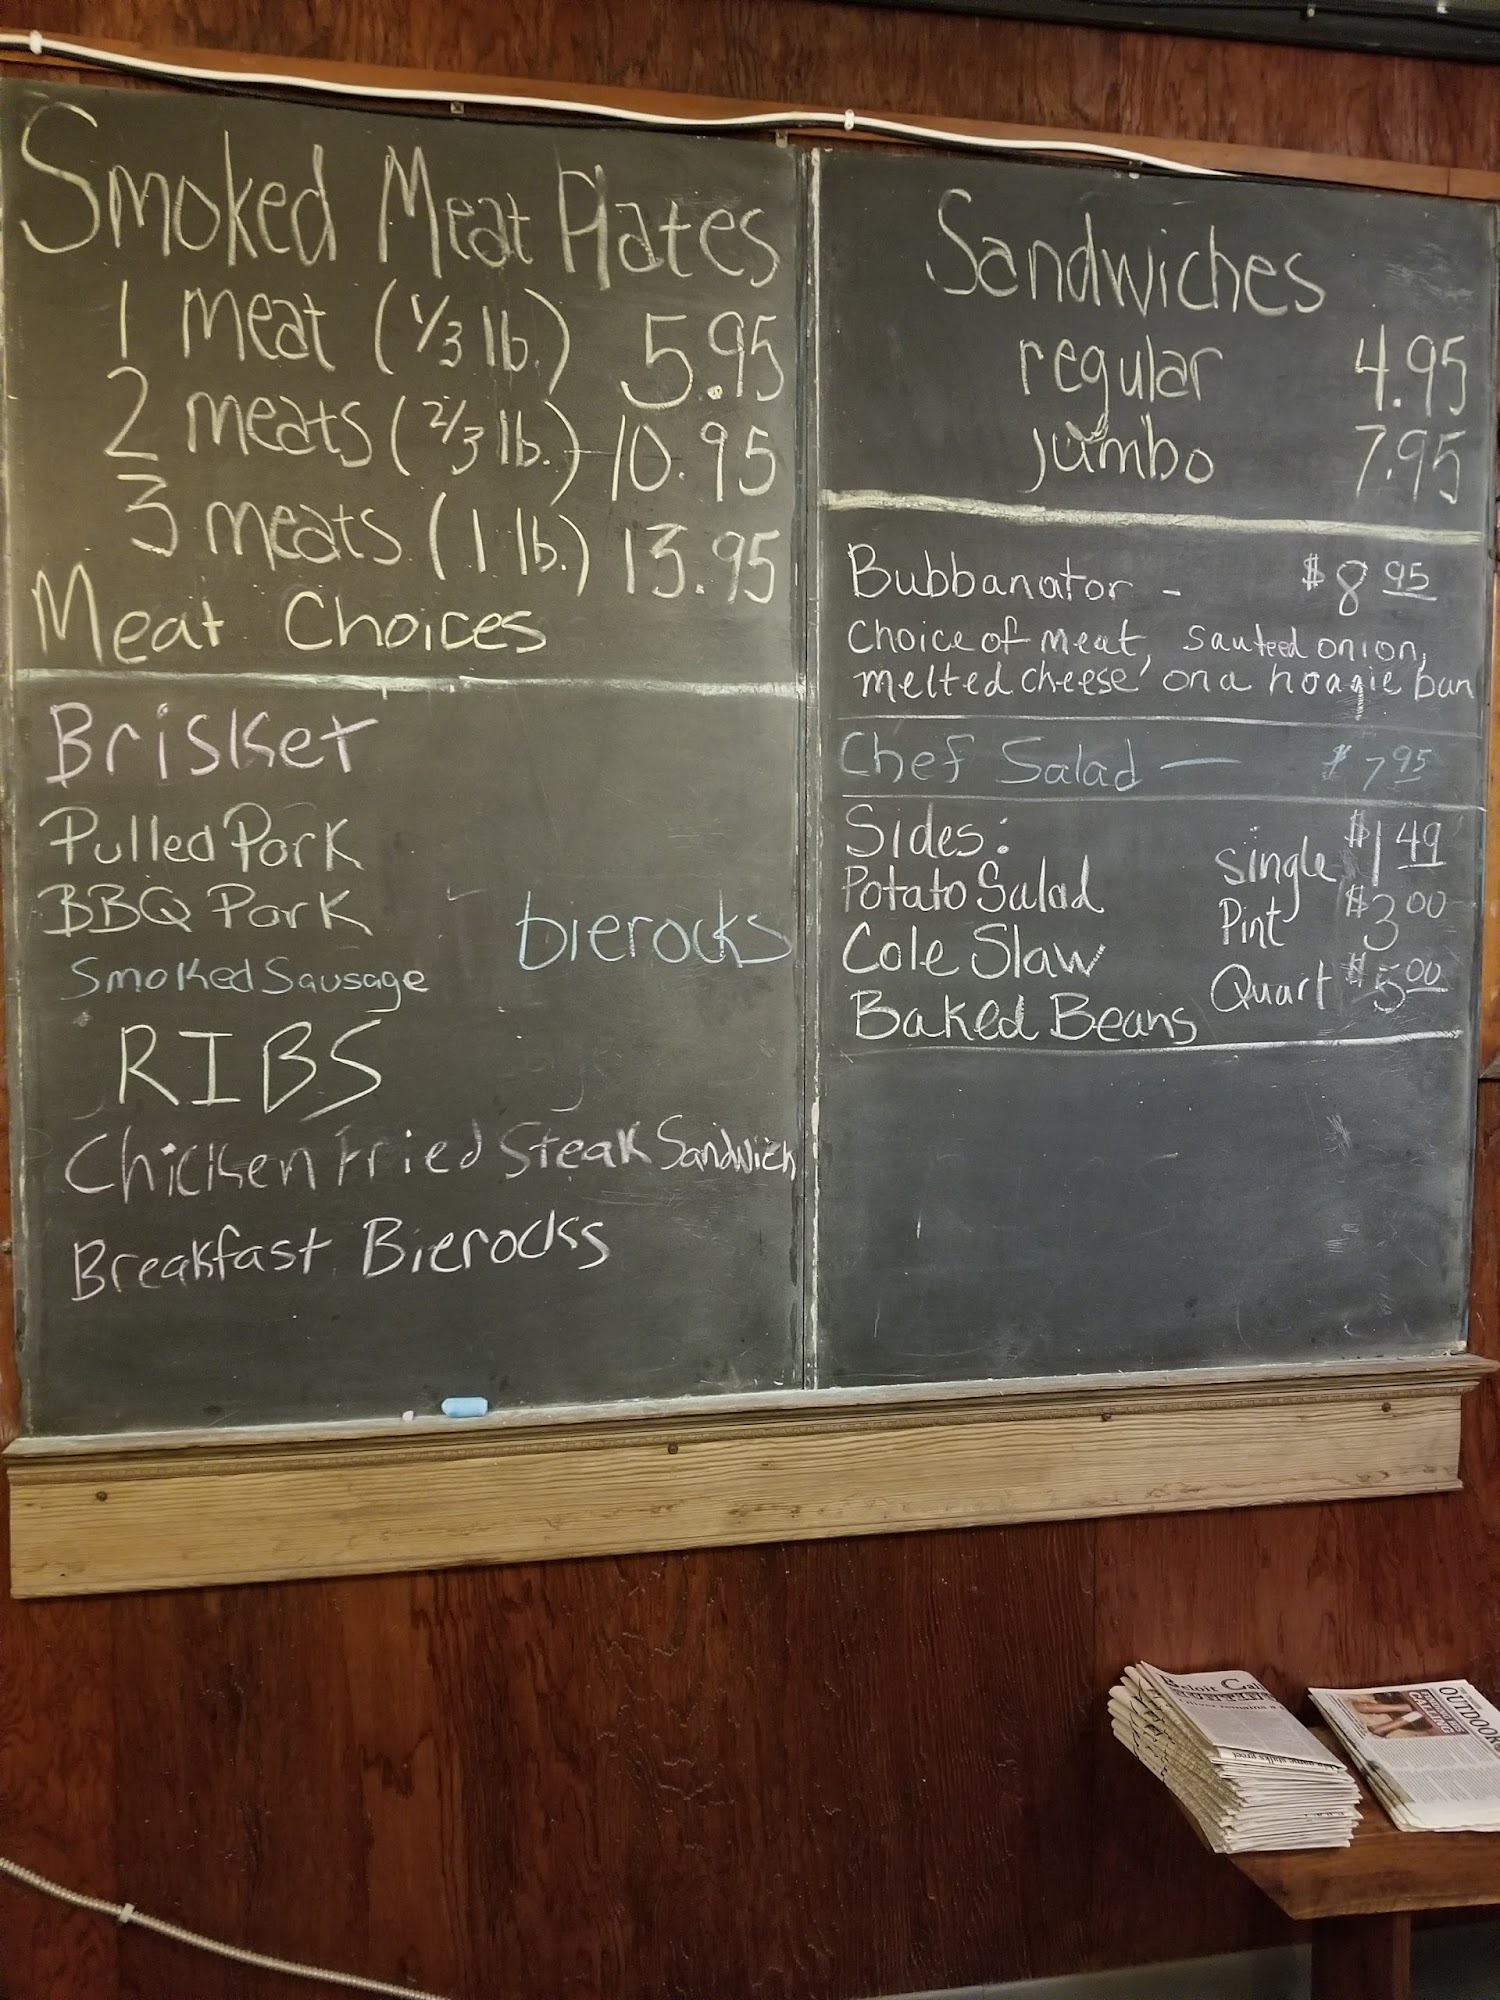 Smoked Meat Plates
1 meat (1/3 lb.) 5.95
2 meats (2/3 lb.) 10.95
3 meats (1 lb.) 13.95
Meat Choices
Brisket
Pulled Pork
BBQ Pork
bierocks
Smoked Sausage
RIBS
Chicken Fried Steak Sandwich
Breakfast Bierocks
Sandwiches
regular 4.95
jumbo 7.95
Bubbanator - $8 95
Choice of meat, sauteed onion,
melted cheese, on a hoagie bun
Chef Salad — $7 95
Sides:
Single $1 49
Potato Salad
Pint $3 00
Cole Slaw
Quart $5 00
Baked Beans
Beloit Cal
OUTDOOR